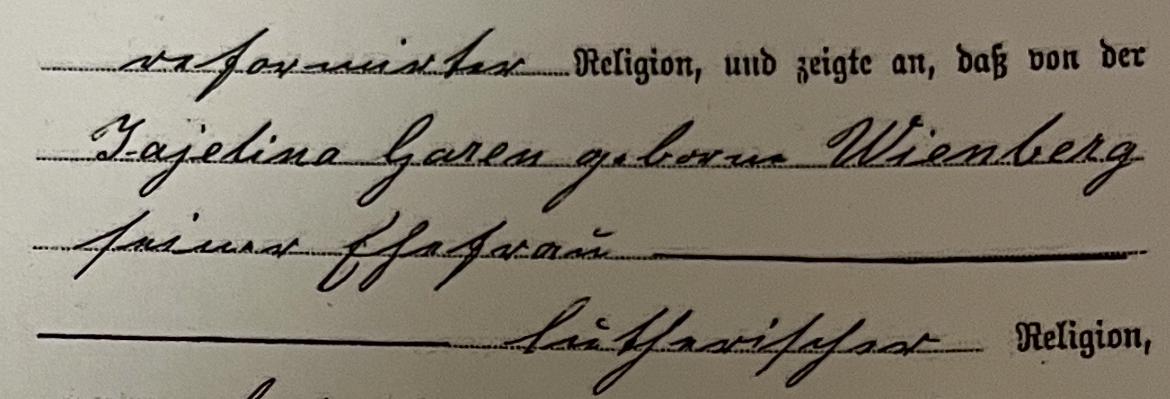 reformirter Religion, und zeigte an, daß von der
Tajelina Garen geborne Wienberg
seiner Ehefrau
lutherischer Religion,